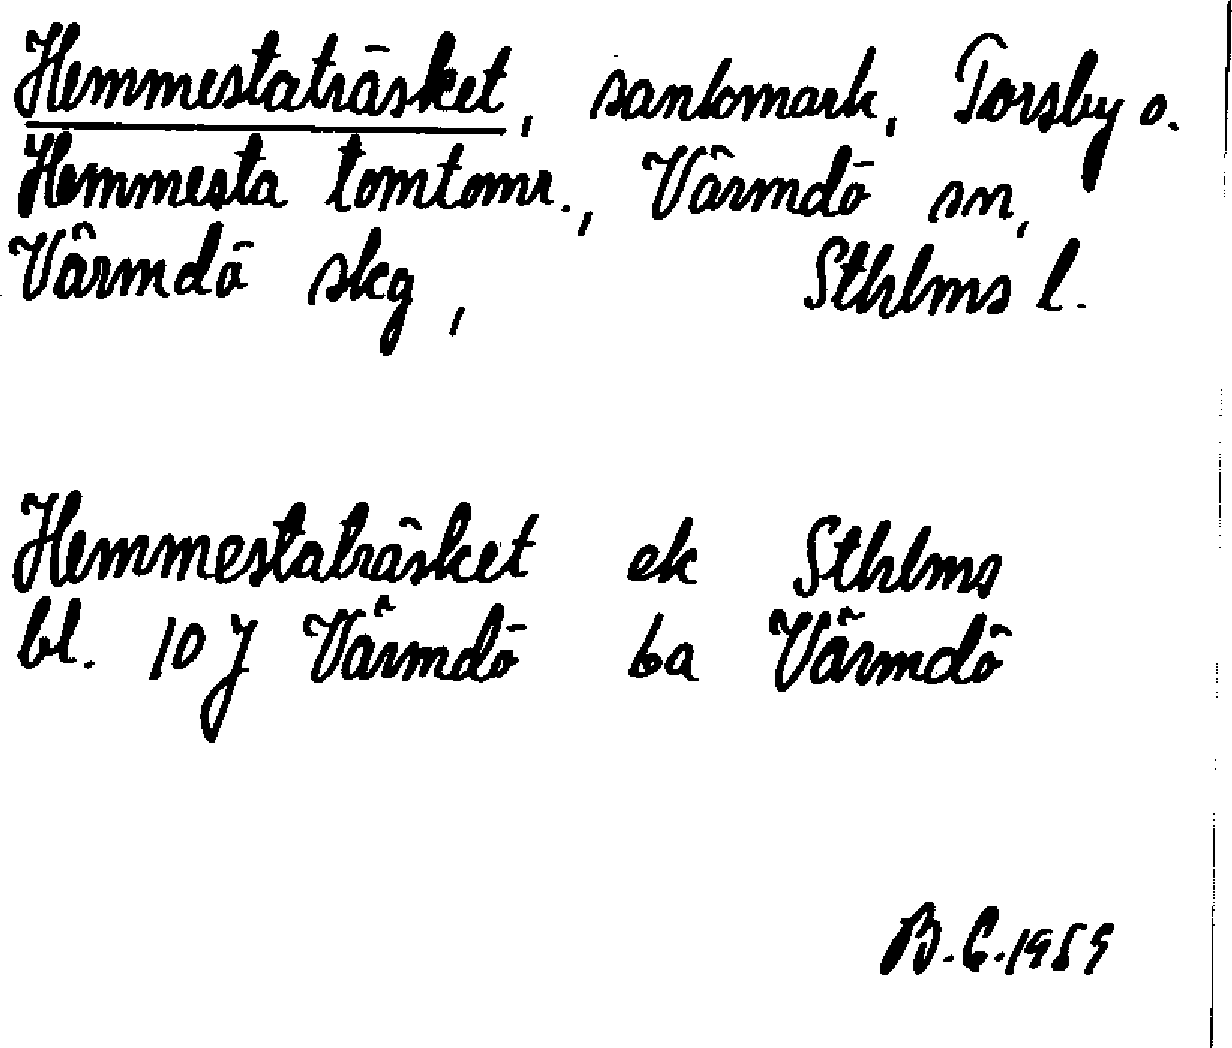 Hemmestaträsket, sankmark, Torsby o.
Hemmesta tomtomr., Värmdö sn,
Värmdö skg, Sthlms l.
Hemmestaträsket ek Sthlms
bl. 10 J Värmdö 6a Värmdö
B.C. 1959